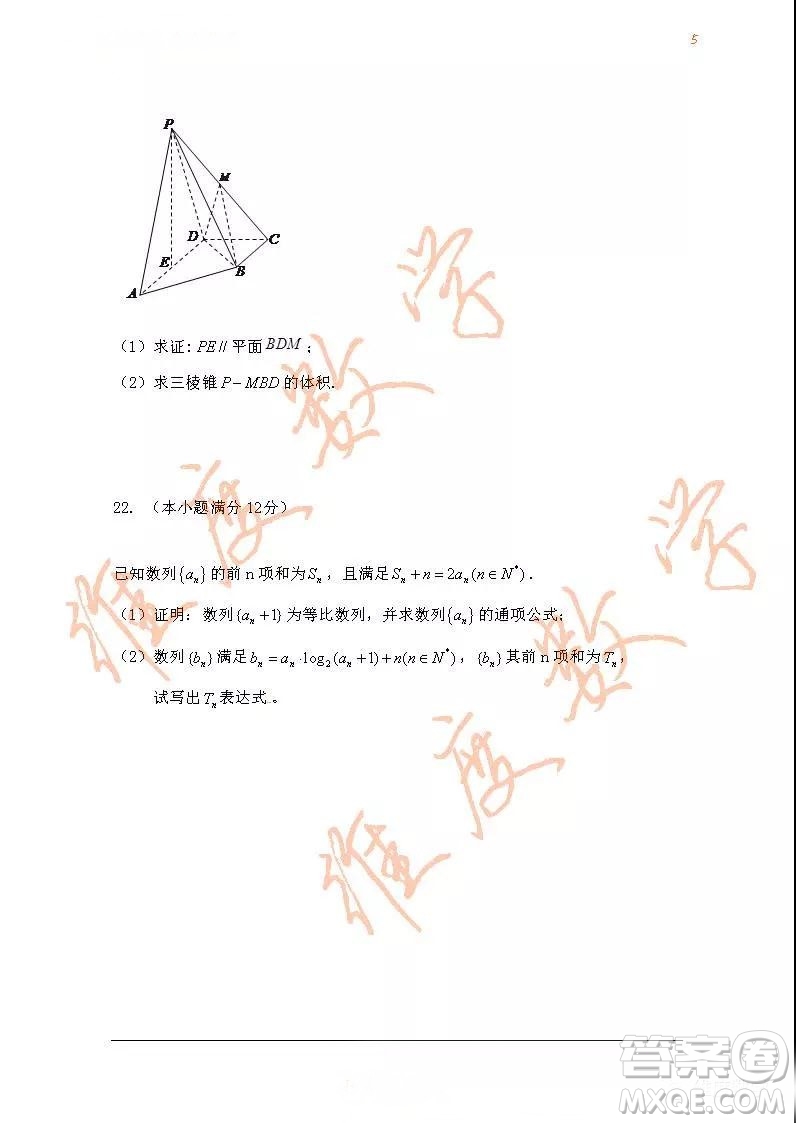 5
P
M
D
C
E
B
A
（1）求证: PE // 平面 BDM ；
（2）求三棱锥 P－MBD 的体积.
22. （本小题满分 12分）
已知数列{aₙ}的前 n 项和为 Sₙ ，且满足 Sₙ + n = 2aₙ (n ∈ N*) .
（1）证明: 数列{aₙ +1} 为等比数列，并求数列{aₙ} 的通项公式；
（2）数列{bₙ}满足 bₙ = aₙ ·log₂(aₙ +1) + n(n ∈ N*) ，{bₙ} 其前 n 项和为 Tₙ ，
试写出 Tₙ 表达式 。
维度数学
维度数学
答案卷
MXQE.COM